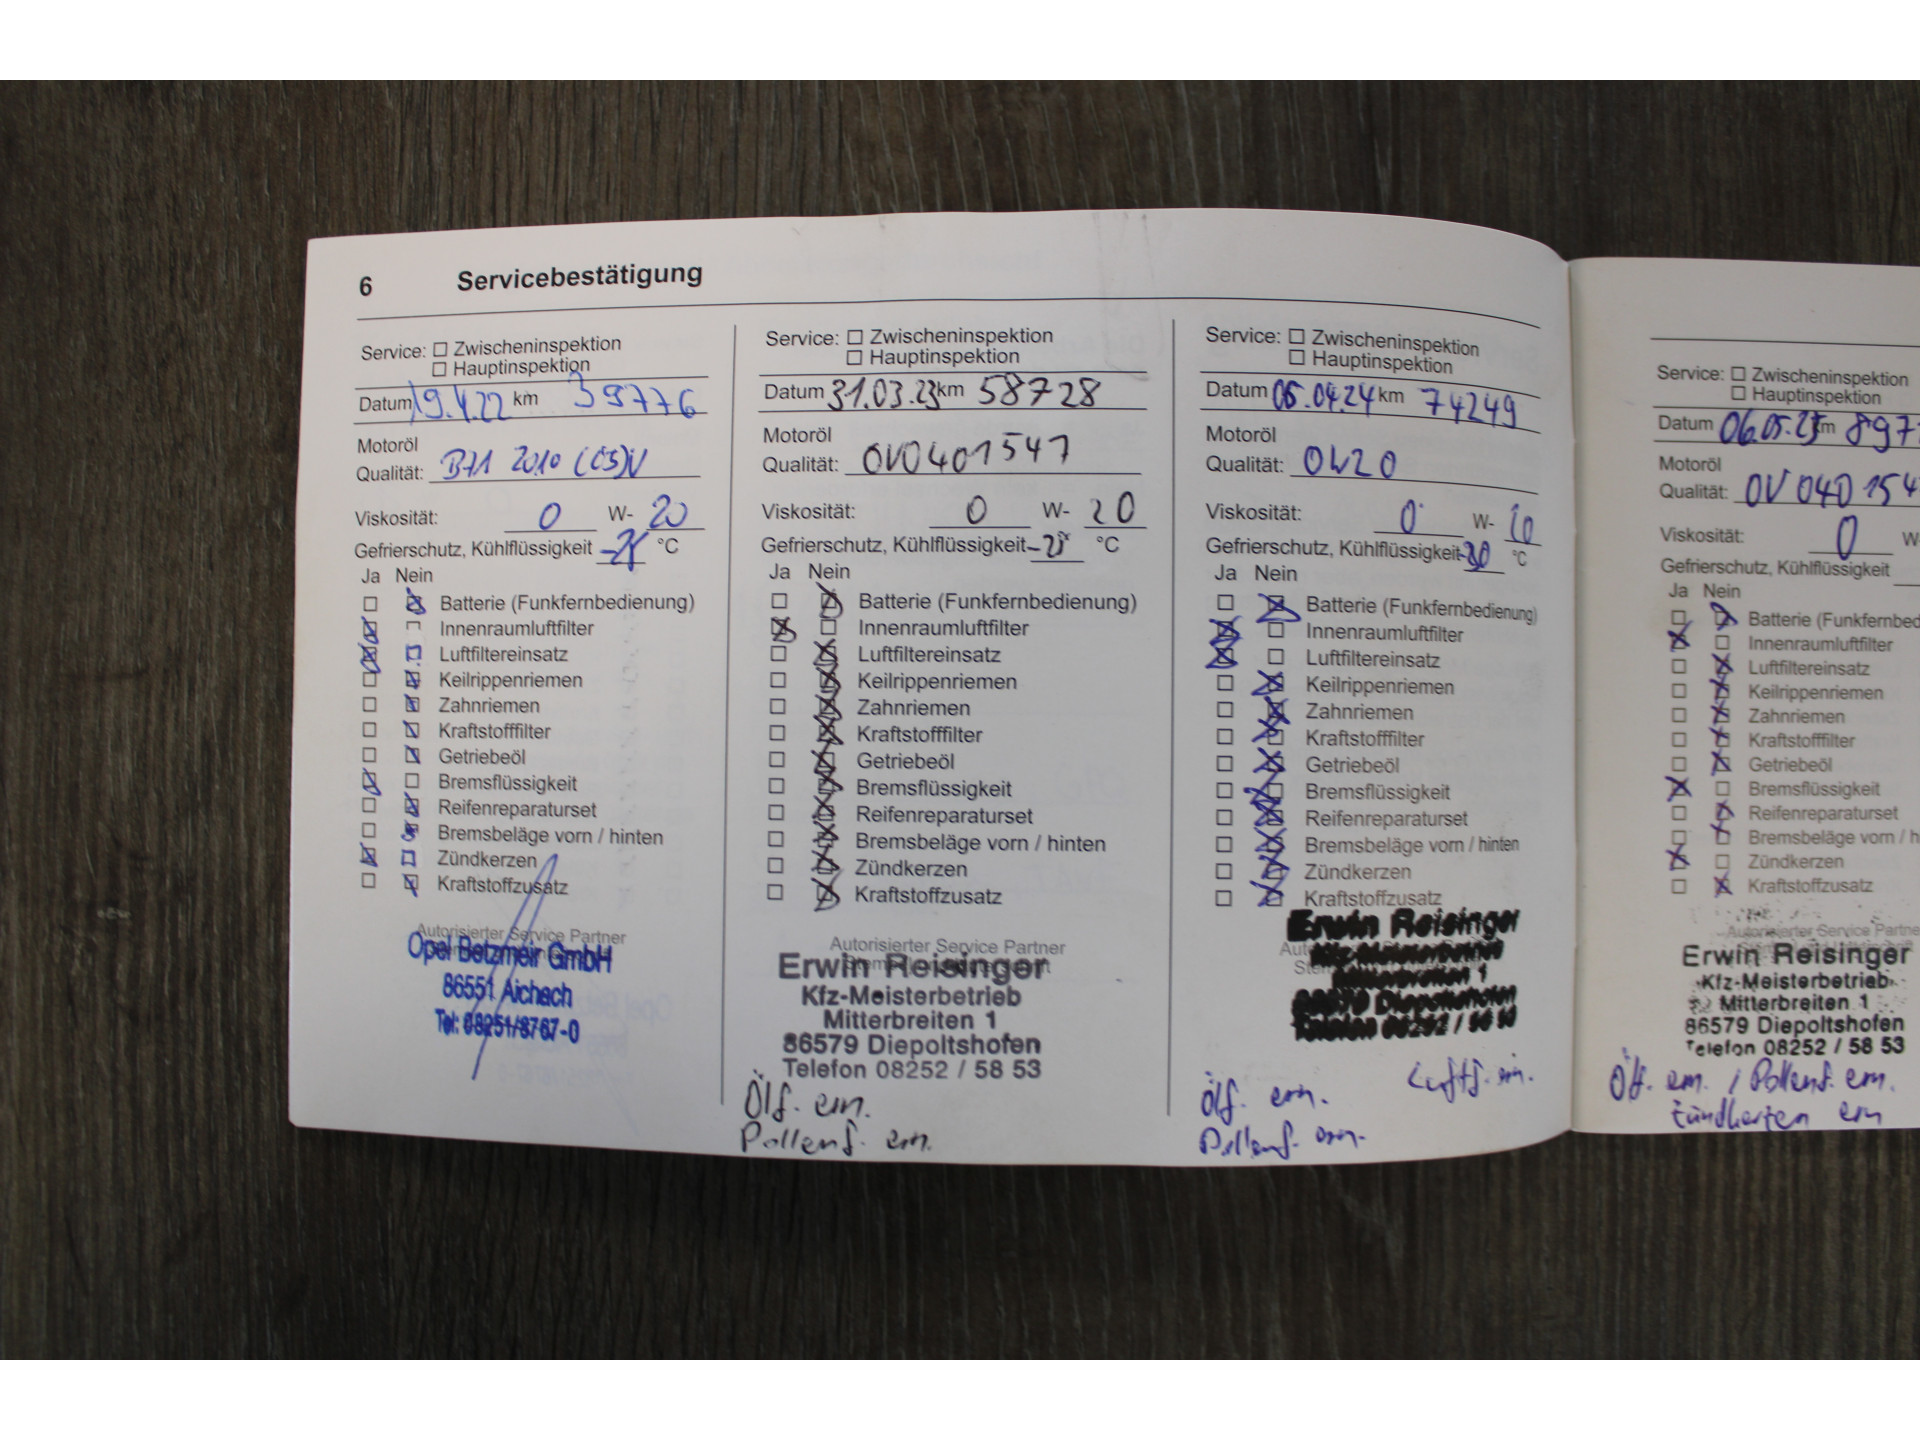 6 Servicebestätigung
Service: Zwischeninspektion
Hauptinspektion
Datum 19.4.22 km 39776
Motoröl
Qualität: B71 2010
Viskosität: 0 W- 20
Gefrierschutz, Kühlflüssigkeit °C
Ja Nein
Batterie (Funkfernbedienung)
Innenraumluftfilter
Luftfiltereinsatz
Keilrippenriemen
Zahnriemen
Kraftstofffilter
Getriebeöl
Bremsflüssigkeit
Reifenreparaturset
Bremsbeläge vorn / hinten
Zündkerzen
Kraftstoffzusatz
Autorisierter Service Partner
Opel Betzmeir GmbH
86551 Aichach
Tel: 08251/8767-0
Service: Zwischeninspektion
Hauptinspektion
Datum 31.03.23 km 58728
Motoröl
Qualität: OV0401547
Viskosität: 0 W- 20
Gefrierschutz, Kühlflüssigkeit °C
Ja Nein
Batterie (Funkfernbedienung)
Innenraumluftfilter
Luftfiltereinsatz
Keilrippenriemen
Zahnriemen
Kraftstofffilter
Getriebeöl
Bremsflüssigkeit
Reifenreparaturset
Bremsbeläge vorn / hinten
Zündkerzen
Kraftstoffzusatz
Autorisierter Service Partner
Erwin Reisinger
Kfz-Meisterbetrieb
Mitterbreiten 1
86579 Diepoltshofen
Telefon 08252 / 58 53
Ölf. ern.
Pollenf. ern.
Service: Zwischeninspektion
Hauptinspektion
Datum 05.04.24 km 74249
Motoröl
Qualität: 0W20
Viskosität: 0 W- 20
Gefrierschutz, Kühlflüssigkeit -30 °C
Ja Nein
Batterie (Funkfernbedienung)
Innenraumluftfilter
Luftfiltereinsatz
Keilrippenriemen
Zahnriemen
Kraftstofffilter
Getriebeöl
Bremsflüssigkeit
Reifenreparaturset
Bremsbeläge vorn / hinten
Zündkerzen
Kraftstoffzusatz
Erwin Reisinger
Kfz-Meisterbetrieb
Mitterbreiten 1
86579 Diepoltshofen
Telefon 08252 / 58 53
Luftf. ern.
Ölf. ern.
Pollenf. ern.
Service: Zwischeninspektion
Hauptinspektion
Datum 06.05.25 km 897
Motoröl
Qualität: OV040154
Viskosität: 0 W
Gefrierschutz, Kühlflüssigkeit
Ja Nein
Batterie (Funkfernbed
Innenraumluftfilter
Luftfiltereinsatz
Keilrippenriemen
Zahnriemen
Kraftstofffilter
Getriebeöl
Bremsflüssigkeit
Reifenreparaturset
Bremsbeläge vorn / h
Zündkerzen
Kraftstoffzusatz
Autorisierter Service Partne
Erwin Reisinger
Kfz-Meisterbetrieb
Mitterbreiten 1
86579 Diepoltshofen
Telefon 08252 / 58 53
Ölf. ern. / Pollenf. ern.
Zündkerzen ern